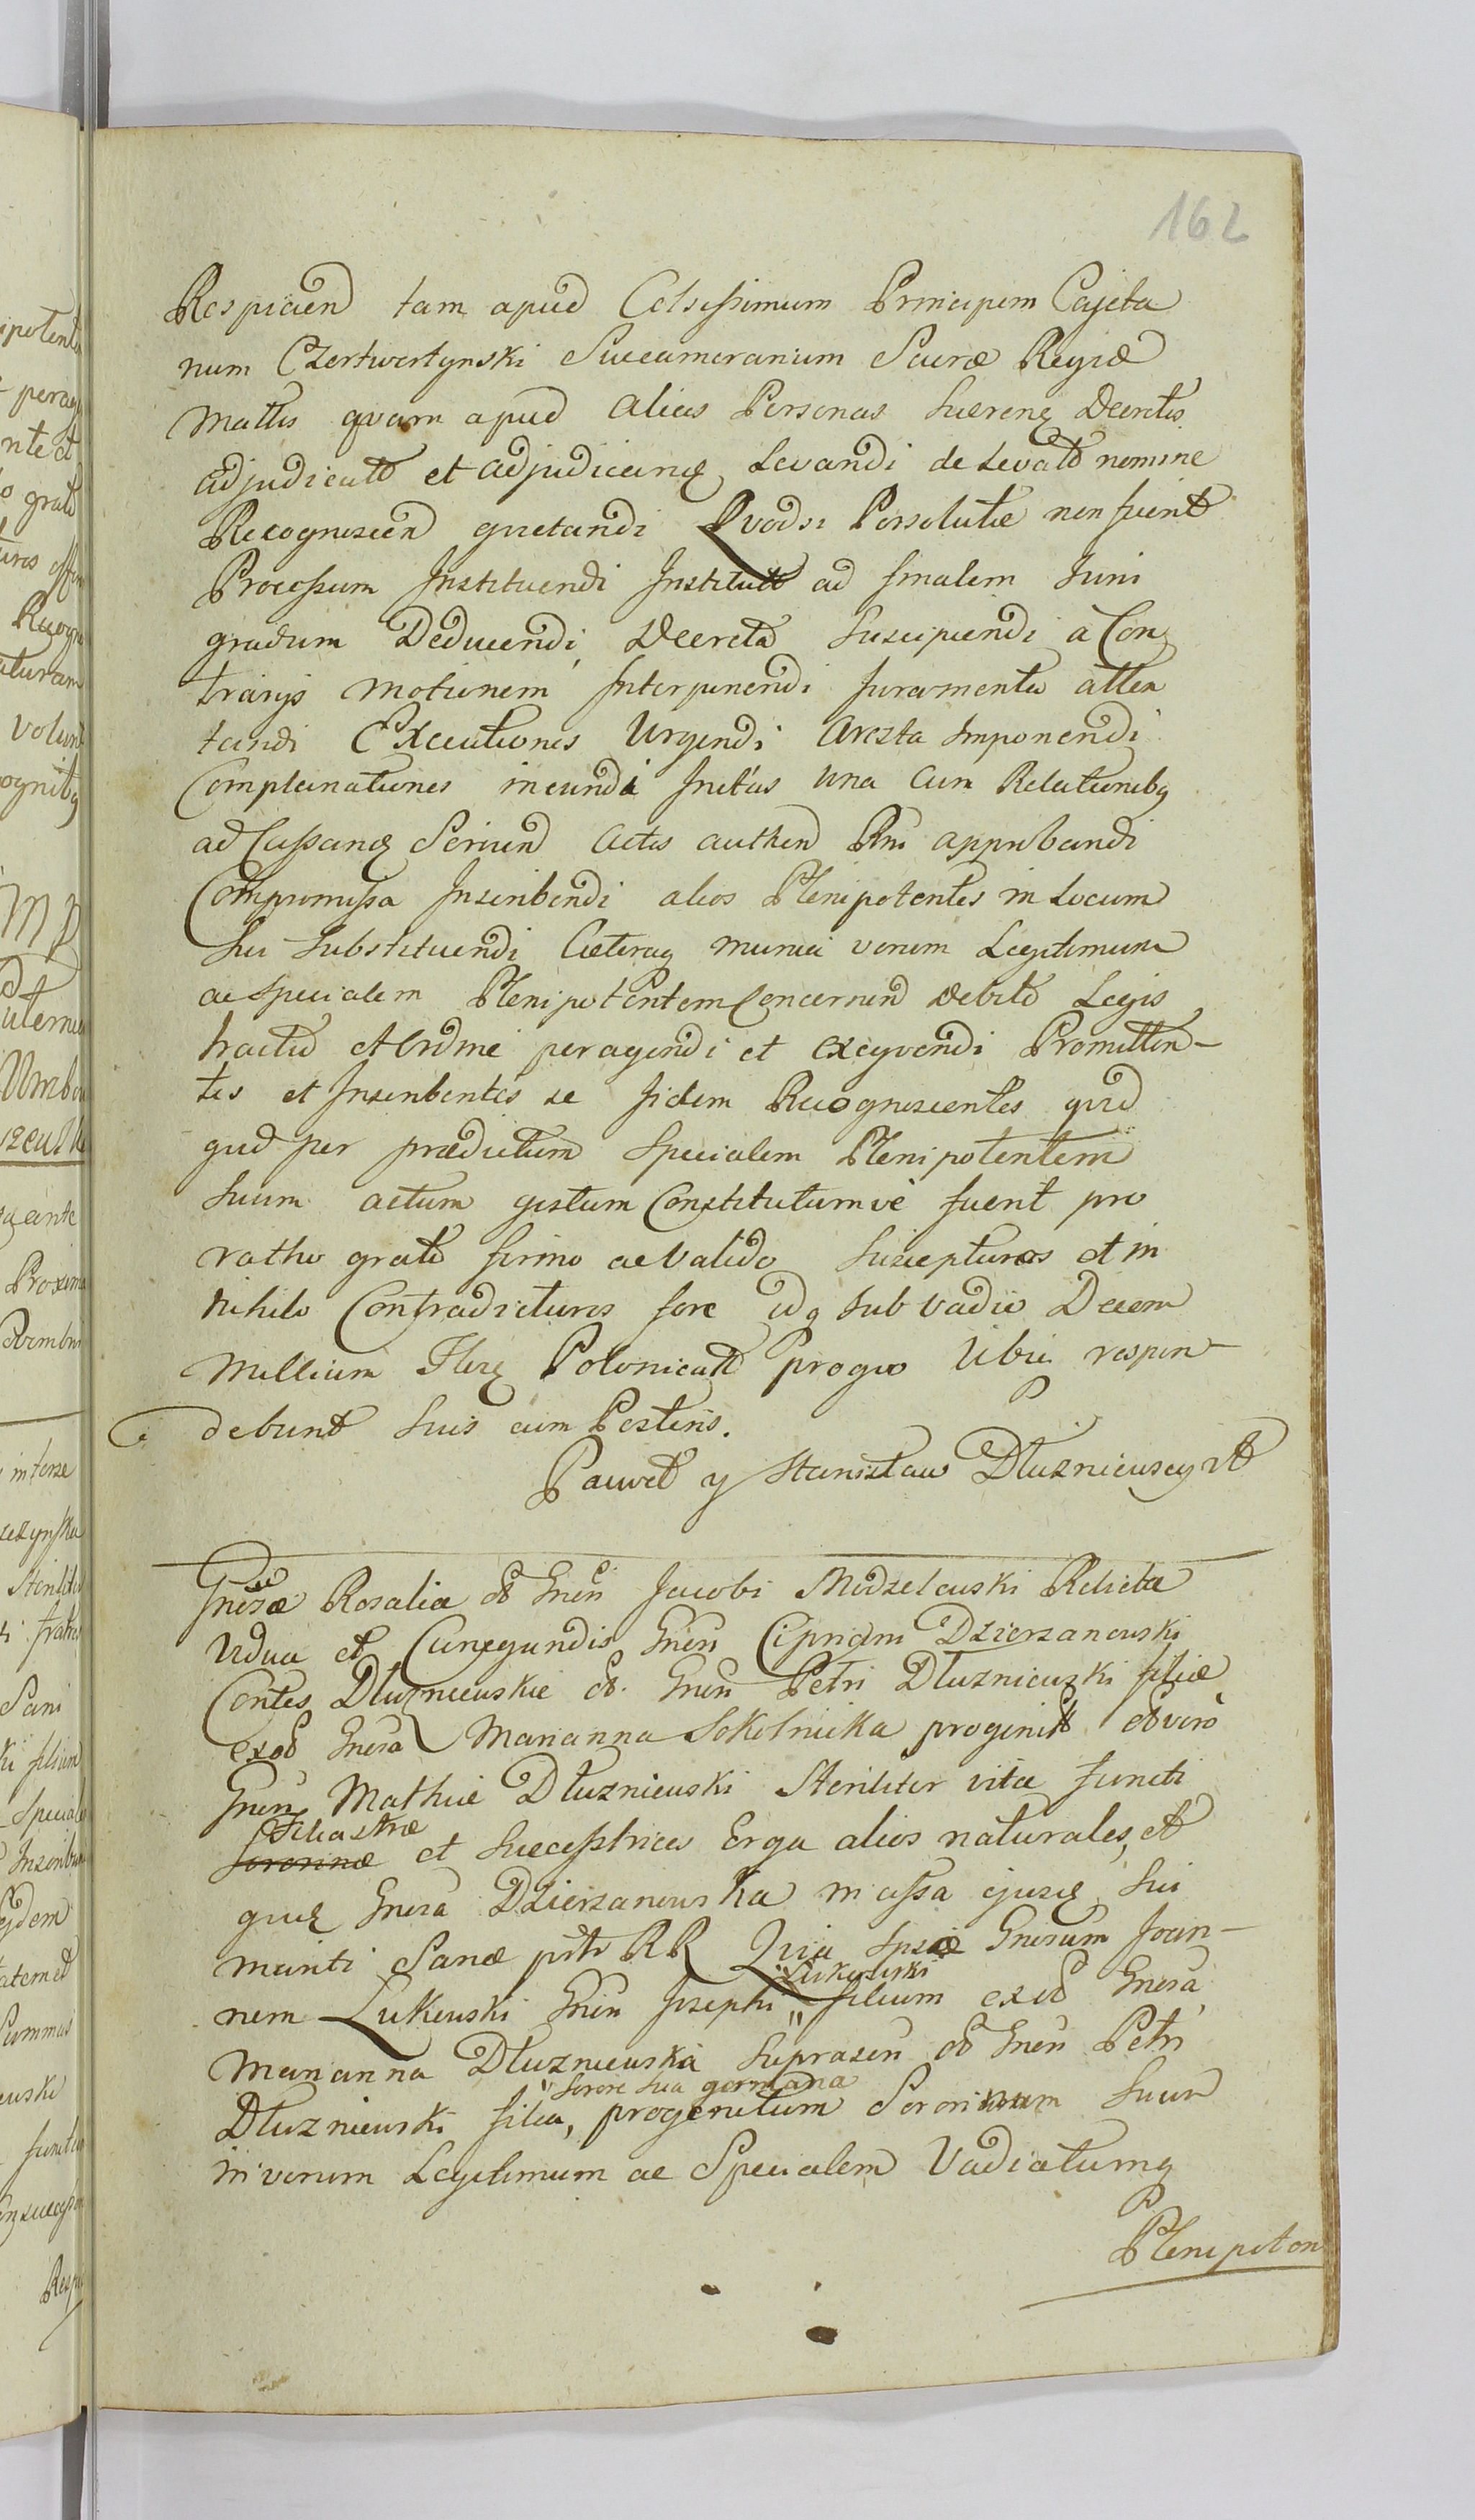 162
Respicien tam apud Celsissimum Principem Cajeta
num Czertwertynski Succamerarium Sacræ Regiæ
Mattis quam apud alias Personas fuerenq Decretis
adjudicatt et adjudicanq Levandi de Levatt nomine
Recognoscen quietandi Quodsi Persolutæ non fuerint
Processum Instituendi Institutt ad finalem Juris
gradum Deducendi, Decreta Suscipiendi à Con
trarijs motionem Interponendi Juramenta atten
tandi Executiones Urgendi Arezta Imponendi
Complanationes ineundi Initas una cum Relationibq
ad Cassanq Serviend Actis authen Rni approbandi
Compromissa Inscribendi alios Plenipotentes in Locum
Sui Substituendi Cæteraq munia verum Legitimum
ac Specialem Plenipotentem Concernen Debite Legis
tractu et Ordine peragendi et exeqvendi Promitten-
tes et Inscribentes se fidem Recognoscentes quid
quid per prædictum Specialem Plenipotentem
Suum actum gestum Constitutumvè fuerit pro
ratho grato firmo ac Valido Suscepturos et in
Nihilo Contradicturos fore idq sub vadio Decem
Millium Flrq Polonicatt proqvo Ubi respon-
debunt Suis cum Posteris.
Paweł y Stanisław Dłuzniewscy
Gnosæ Rosalia Gnen Jacobi Modzelewski Relicta
Vidua et Cunegundis Gnen Cipriani Dzierzanowski
Contes Dłuzniewskie Gnen Petri Dłuzniewski filiæ
exod Gnosa Marianna Sokolnicka progenitt et verò
Gnen Mathiæ Dłuzniewski Steriliter vita functi
Filiastræ
Sororinæ et Successtrices Erga alios naturales, et
quiq Gnosa Dzierzanowska in assa ejusq Sui
mariti Sanæ prtr RR Quia Ipsæ Gnosum Joan-
Łukowski
nem Łukowski Gnen Josephi filium exod Gnosa
Marianna Dłuzniewska Suprascri Gnen Petri
Sorore Sua germana
Dłuzniewski filia, progenitum Sororinum Suum
in verum Legitimum ac Specialem Vadiatumq
Plenipoten